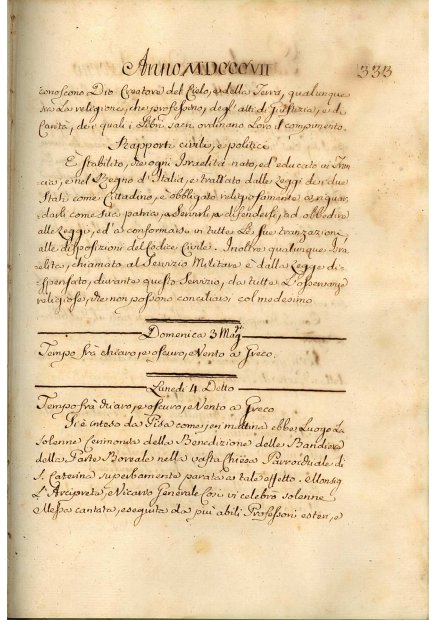 Anno MDCCCVII 333
conoscono Dio Creatore del Cielo, e della Terra, qualunque
sia la religione, che professino, degl'atti di Giustizia, e di
Carità, de' quali i Libri Sacri ordinano loro il compimento.
Rapporti civili, e politici
È stabilito, che ogni Israelita nato, ed educato in Fran-
cia, e nel Regno d'Italia, e trattato dalle Leggi dei due
Stati come Cittadino, è obbligato religiosamente a riguar-
darli come sua patria, a servirli, a difenderli, ad obbedire
alle Leggi, ed a conformarsi in tutte le sue tranzazioni
alle disposizioni del Codice Civile. Inoltre qualunque Isra-
elita, chiamato al Servizio Militare è dalla Legge di-
spensato, durante questo Servizio, da tutte l'osservanze
religiose, che non possono conciliarsi col medesimo.
Domenica 3 Mag.
Tempo frà chiaro, e oscuro, e Vento a Greco.
Lunedì 4 Detto
Tempo frà chiaro, e oscuro, e Vento a Greco
Si è inteso da Pisa come jeri mattina ebbe Luogo la
Solenne Cerimonia della Benedizione delle Bandiere
della Parte Boreale nella vasta Chiesa Parrochiale di
S. Caterina superbamente parata a tale effetto. Monsig.
L'Arciprete, e Vicario Generale Cosi vi celebrò solenne
Messa cantata, eseguita da più abili Professori esteri, e